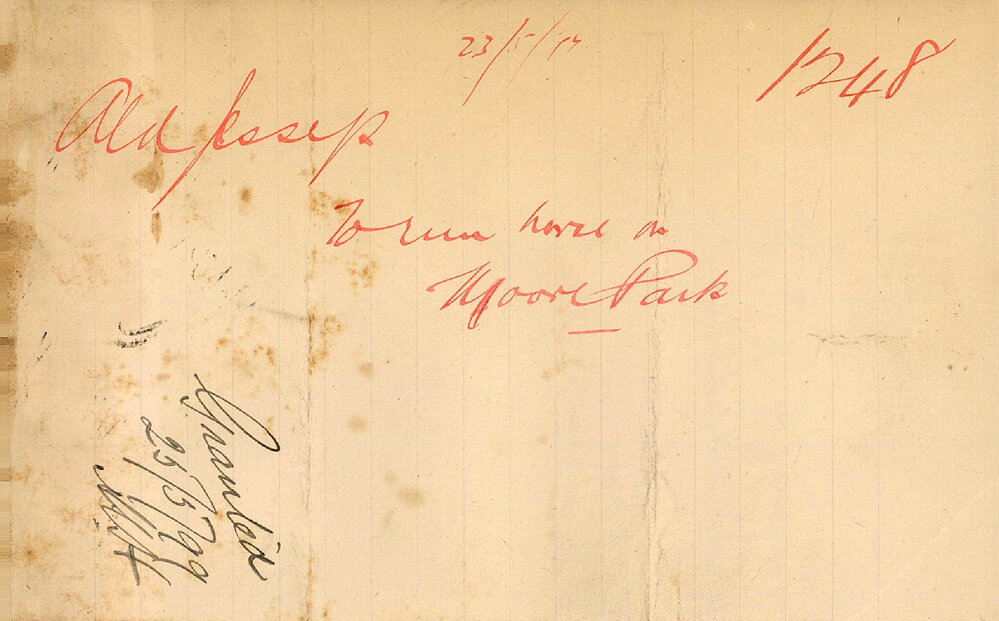 23/5/99
1248
Ald Jessep
To run horse on
Moore Park
Granted
25/5/99